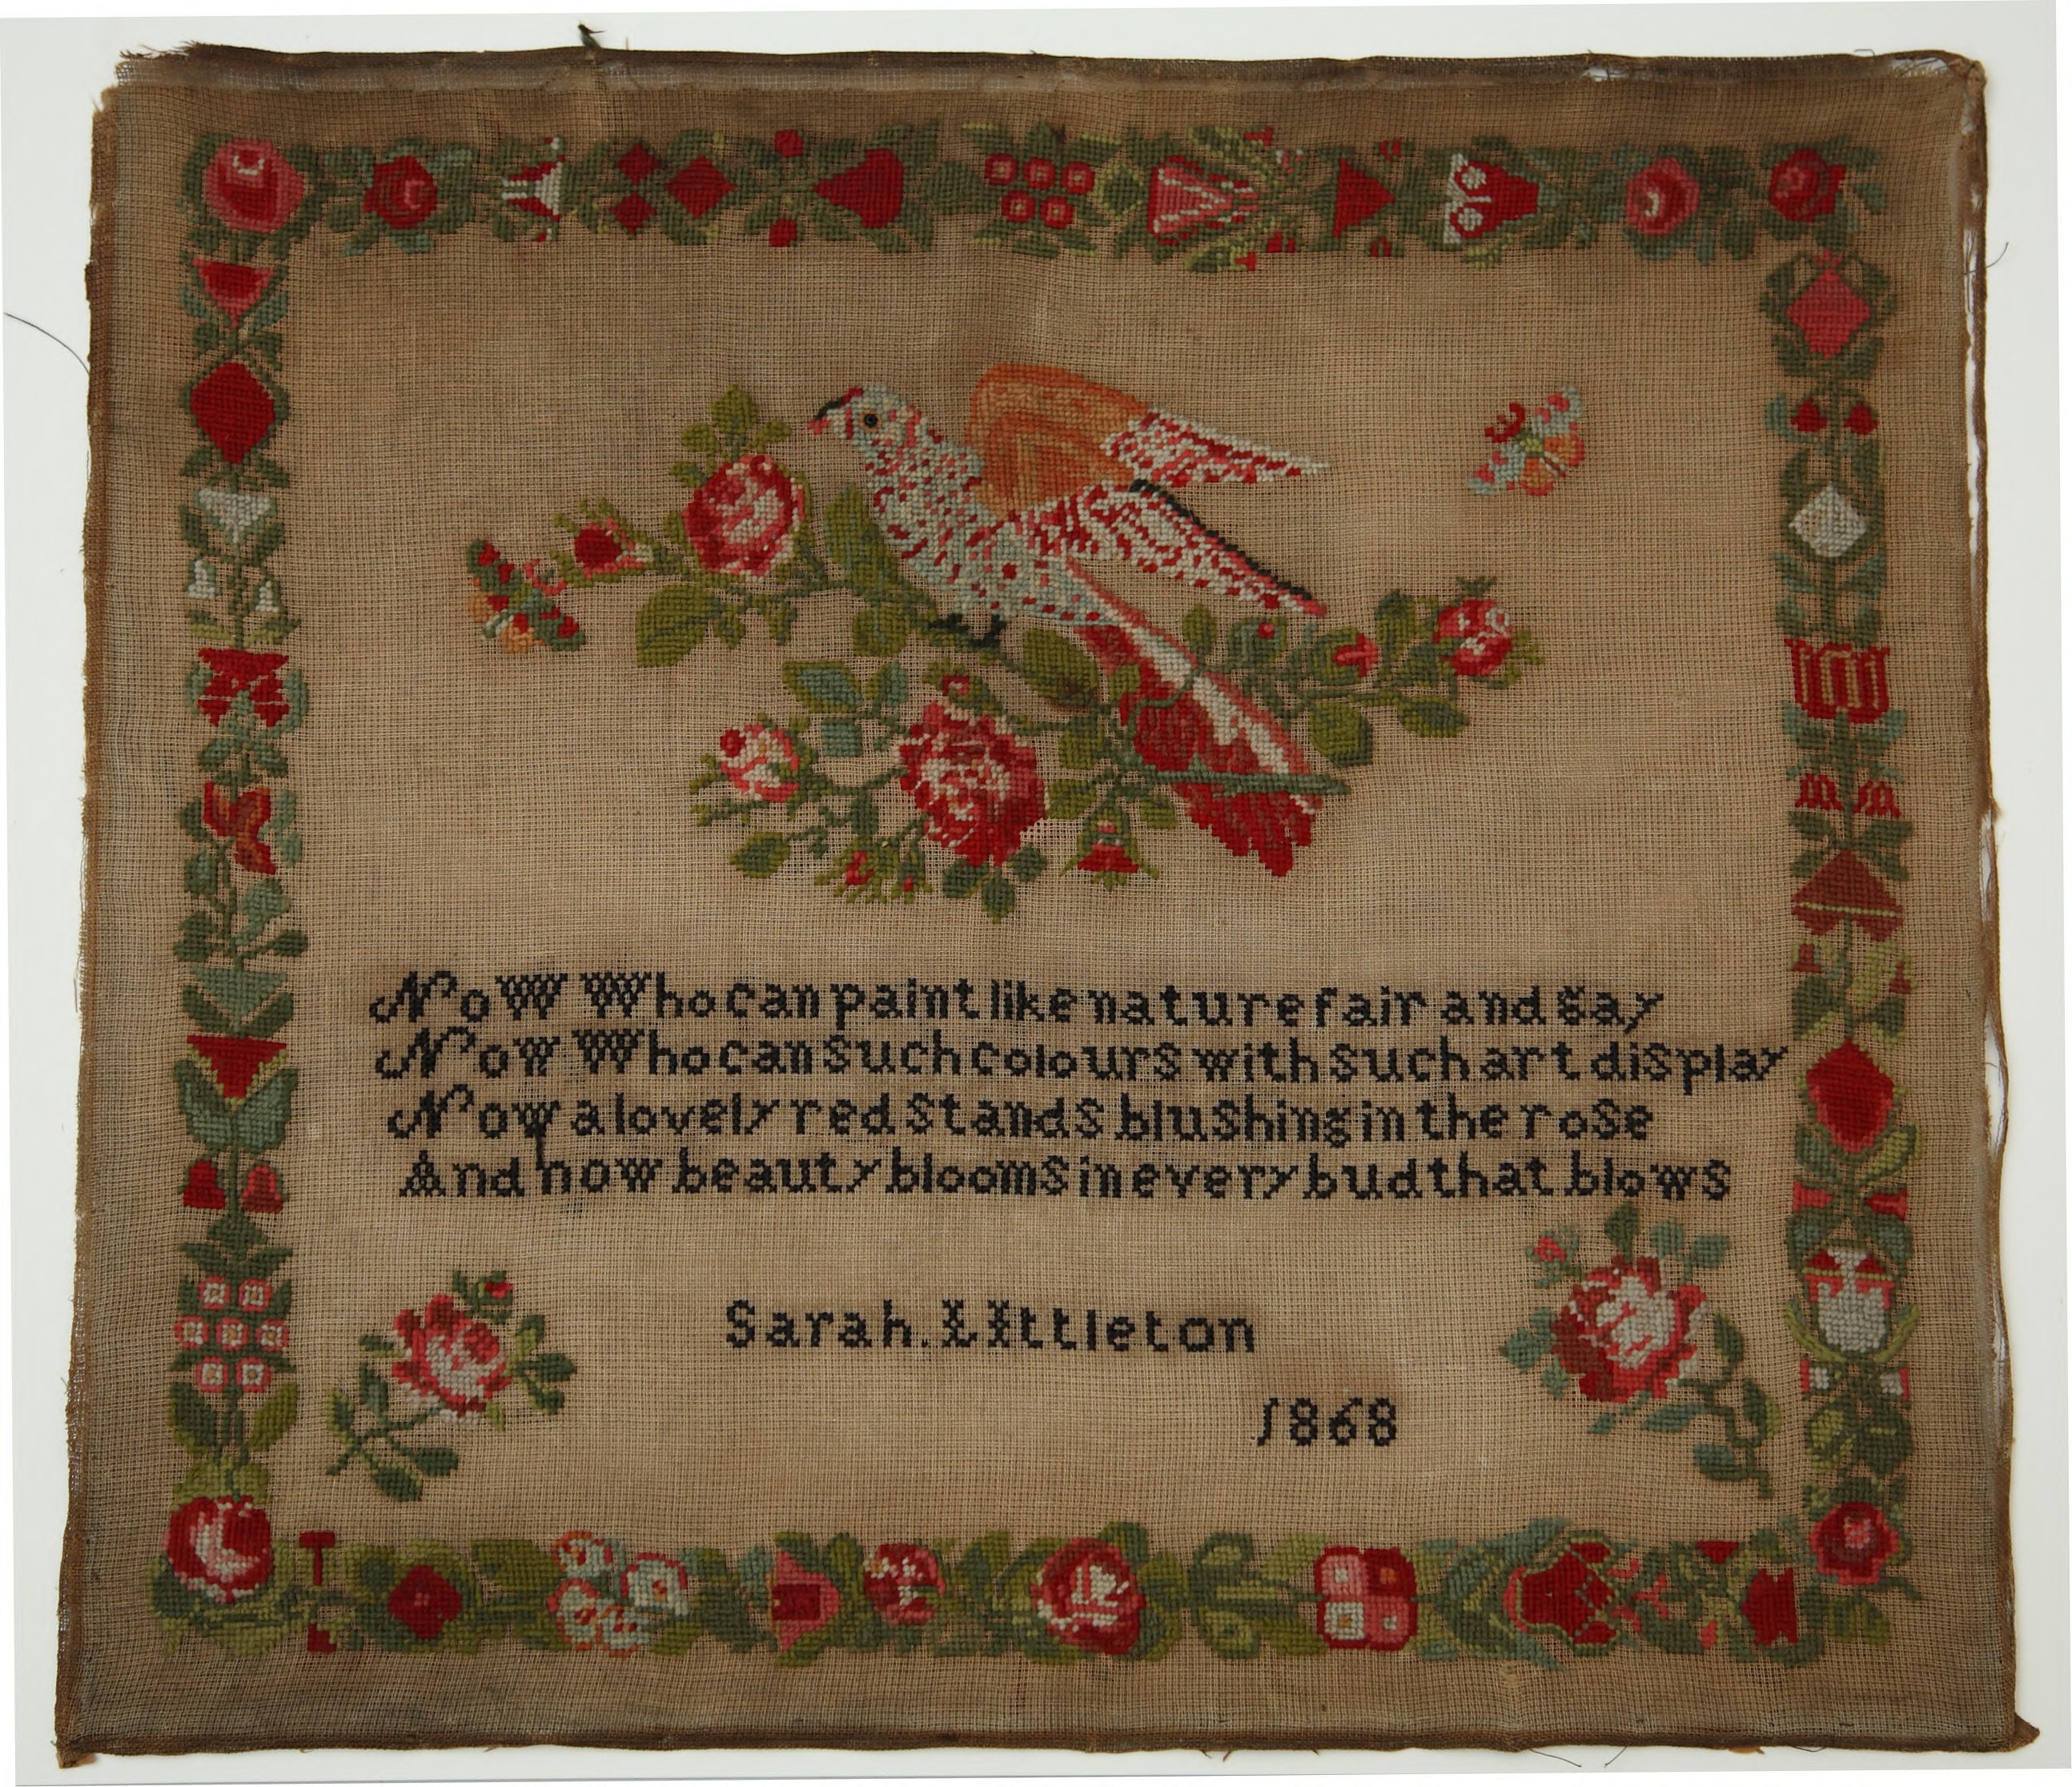 NoW Who can paint like nature fair and gay
Now Who can such colours with such art display
Now a lovely red stands blushing in the rose
And now beauty blooms in every bud that blows
Sarah. LIttleton
1868